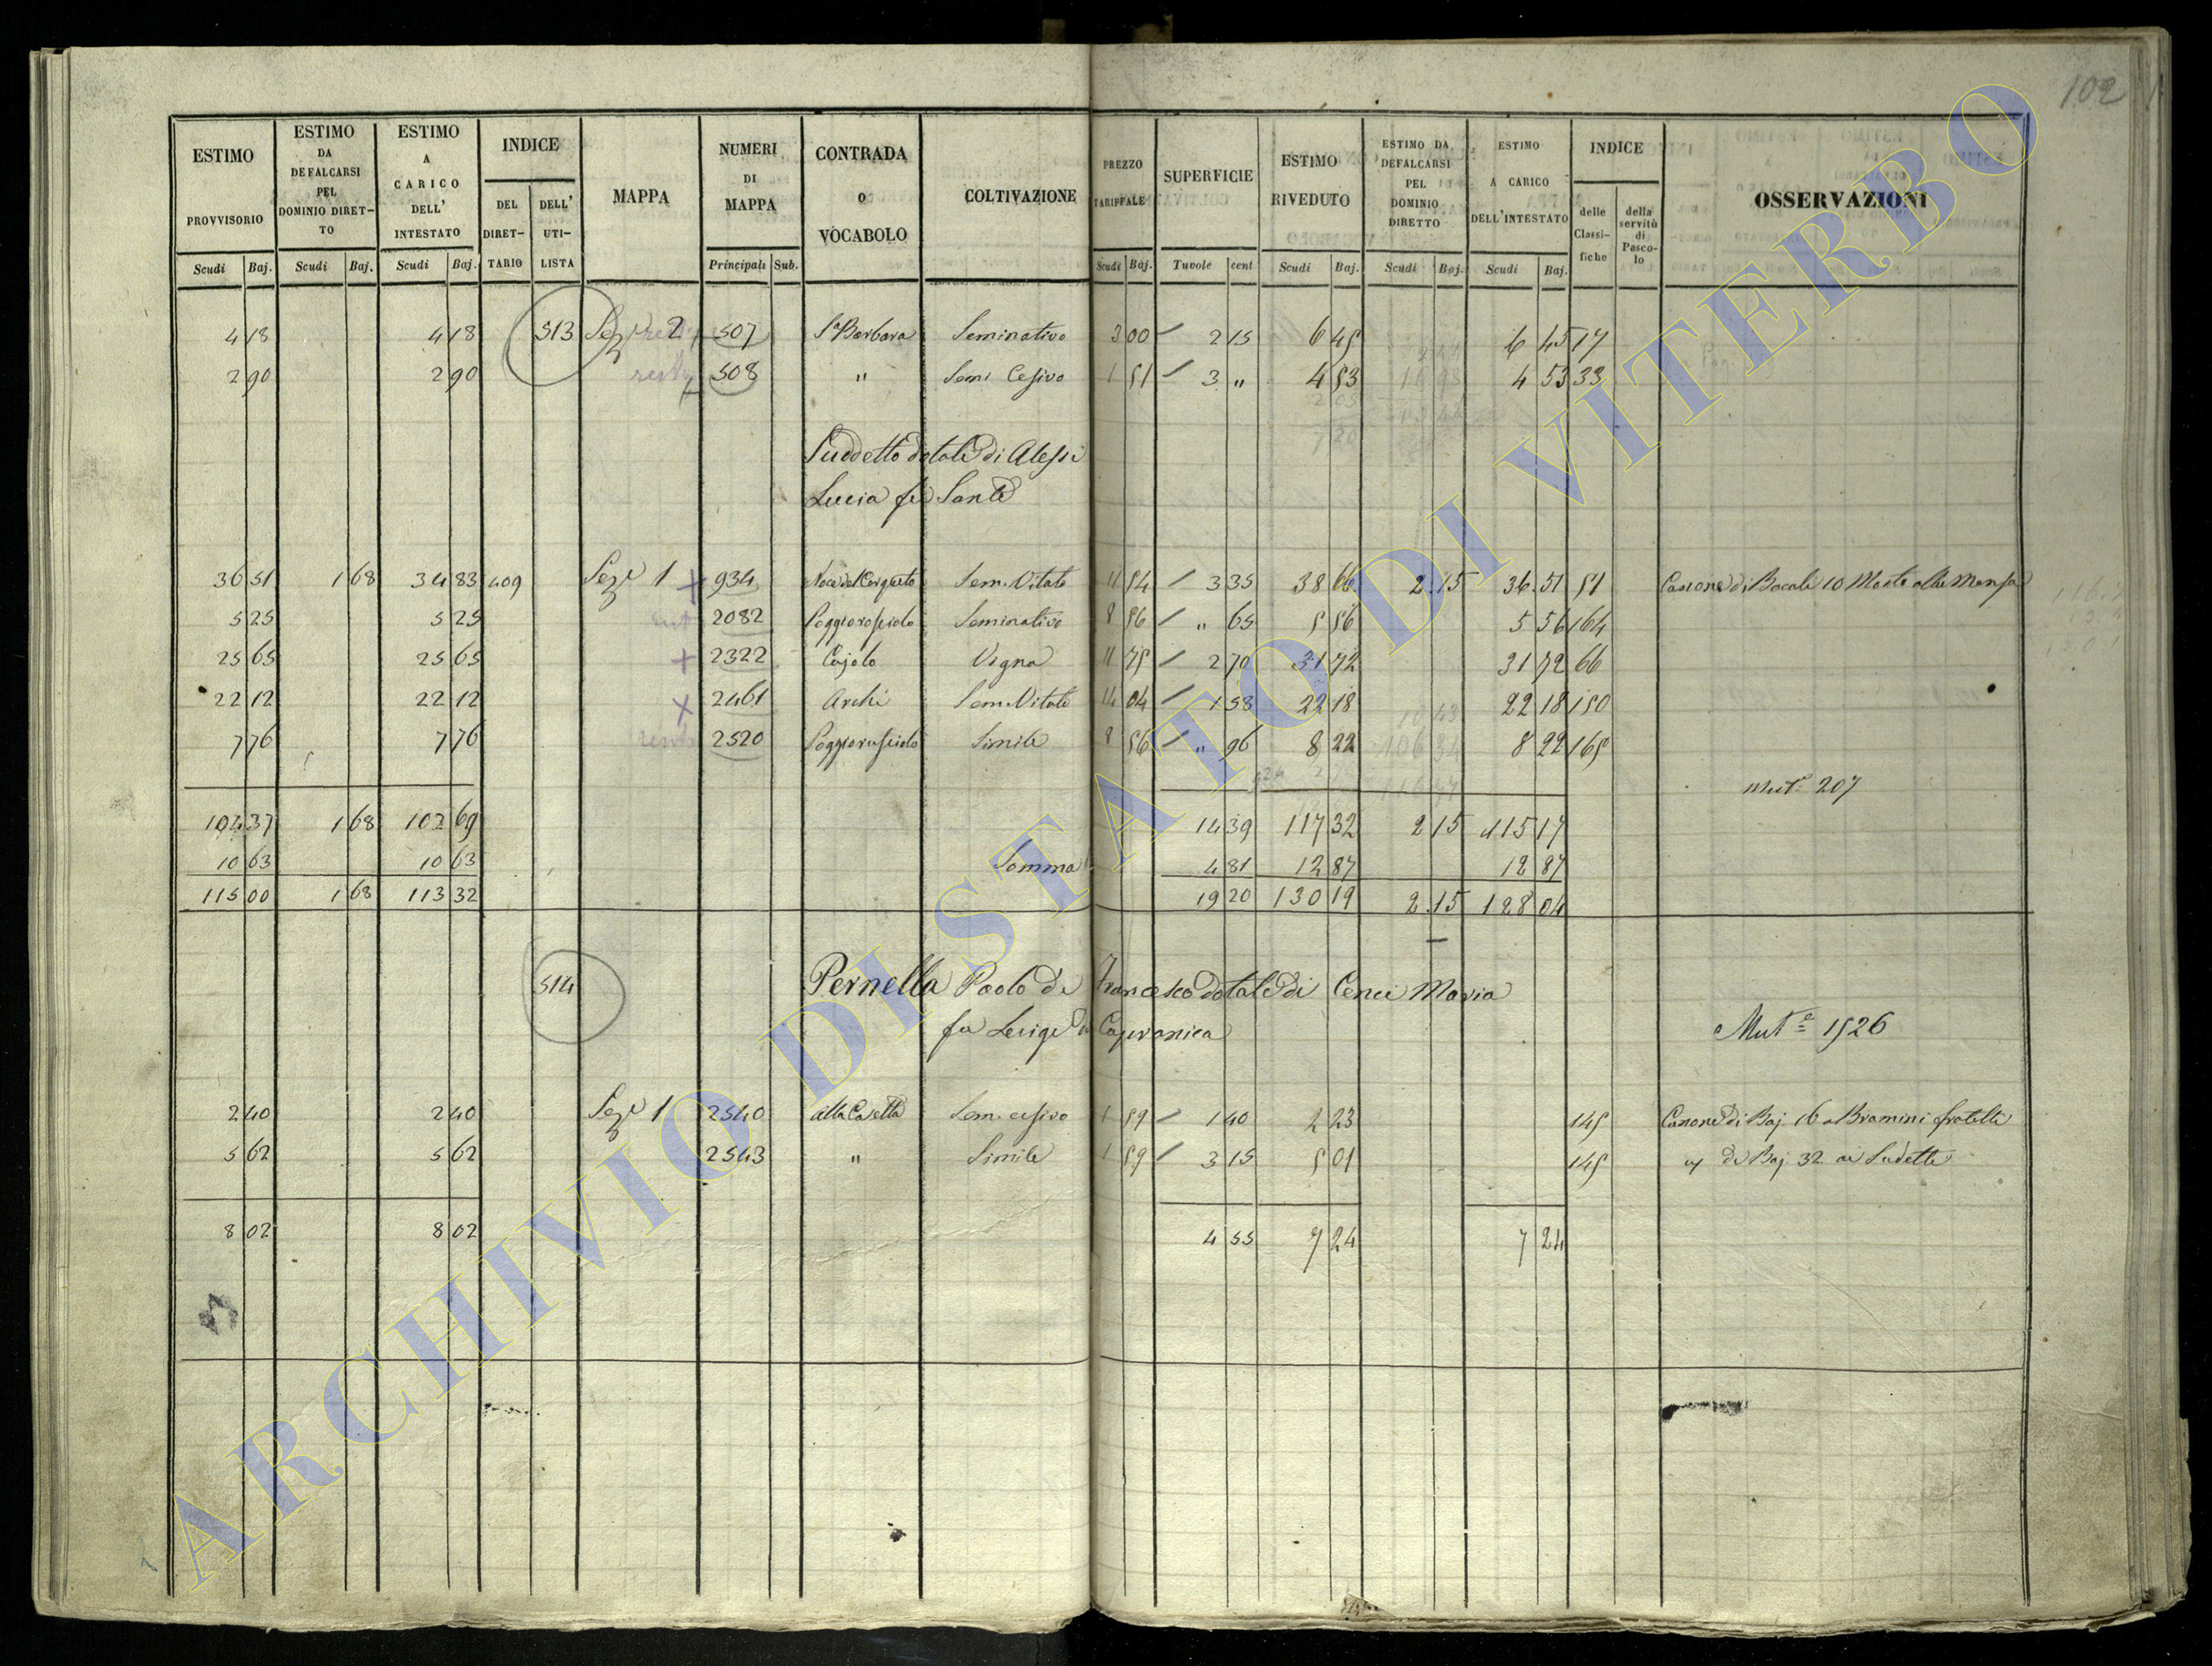 102
ESTIMO PROVVISORIO | ESTIMO DA DEFALCARSI PEL DOMINIO DIRETTO | ESTIMO A CARICO DELL' INTESTATO | INDICE | MAPPA | NUMERI DI MAPPA | CONTRADA O VOCABOLO | COLTIVAZIONE | PREZZO TARIFFALE | SUPERFICIE | ESTIMO RIVEDUTO | ESTIMO DA DEFALCARSI PEL DOMINIO DIRETTO | ESTIMO A CARICO DELL'INTESTATO | INDICE | OSSERVAZIONI
Scudi | Baj. | Scudi | Baj. | Scudi | Baj. | DEL DIRET-TARIO | DELL' UTI-LISTA | Principali | Sub. | Scudi | Baj. | Tavole | cent | Scudi | Baj. | Scudi | Baj. | Scudi | Baj. | delle Classi-fiche | della servitù di Pasco-lo
4 18 | 4 18 | 513 | Sez.e 2 | 507 | Sa Barbara | Seminativo | 3 00 | 2 15 | 6 45 | 6 45 | 17
2 90 | 2 90 | resta | 508 | " | Semi Cesivo | 1 51 | 3 " | 4 53 | 4 53 | 33
Suddetto dotale di Alessi
Lucia fu Sante
36 51 | 1 68 | 34 83 | 409 | Sez.e 1 | 934 | Noce del | Sem. Vitato | 11 54 | 3 35 | 38 66 | 2.15 | 36.51 | 51 | Canone di Bocali 10 Mosto alla Mensa
5 25 | 5 25 | 2082 | Poggiorosciolo | Seminativo | 8 56 | " 65 | 5 56 | 5 56 | 164
25 65 | 25 65 | 2322 | Cajolo | Vigna | 11 75 | 2 70 | 31 72 | 31 72 | 66
22 12 | 22 12 | 2461 | Archi | Sem. Vitato | 14 04 | 1 58 | 22 18 | 22 18 | 150
7 76 | 7 76 | resta | 2520 | Poggiorosciolo | Simile | 8 56 | " 96 | 8 22 | 8 22 | 165
Mut.e 207
104 37 | 1 68 | 102 69 | 14 39 | 117 32 | 2 15 | 115 17
10 63 | 10 63 | Somma | 4 81 | 12 87 | 12 87
115 00 | 1 68 | 113 32 | 19 20 | 130 19 | 2.15 | 128 04
514 | Pernella Paolo di Francesco dotale di Cenci Maria
fu Luigi di Capranica
Mut.e 1526
2 40 | 2 40 | Sez.e 1 | 2540 | alla Casetta | Sem. cesivo | 1 59 | 1 40 | 2 23 | 145 | Canone di Baj. 16 a Bramini fratelli
5 62 | 5 62 | 2543 | " | Simile | 1 59 | 3 15 | 5 01 | 145 | di Baj. 32 ai Sudetti
8 02 | 8 02 | 4 55 | 7 24 | 7 24
ARCHIVIO DI STATO DI VITERBO